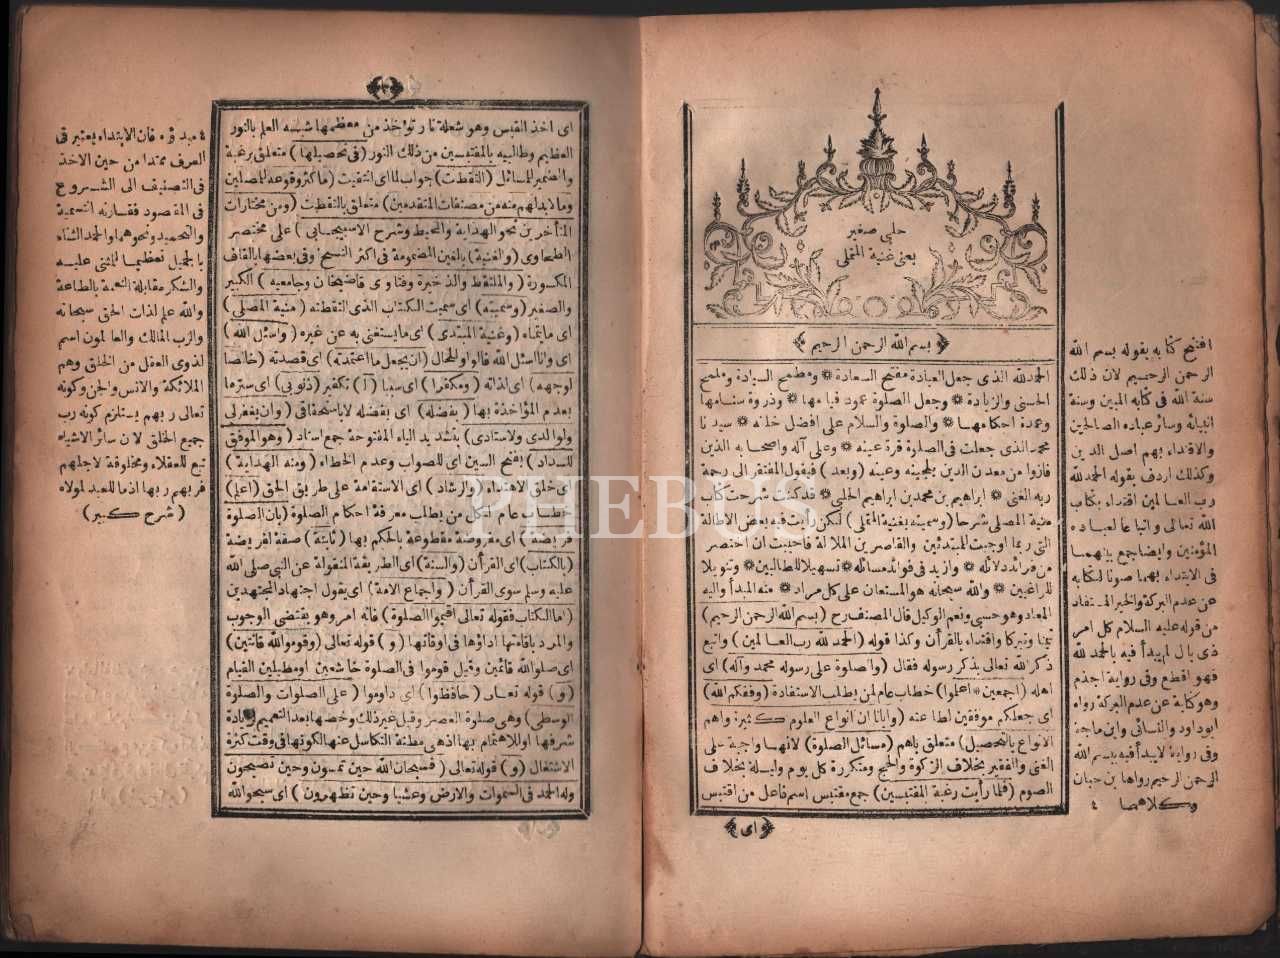 حلبي صغير
يعنى غنية المتملى
بسم الله الرحمن الرحيم
الحمد لله الذى جعل العبادة مفتيح السعادة * ومطمح السيادة وملمح
الحسنى والزيادة * وجعل الصلوة عمود قيامها * وذروة سنامها
وعمدة احكامها * والصلوة والسلام على افضل خلقه * سيدنا
محمد الذى جعلت فى الصلوة قرة عينه * وعلى آله واصحابه الذين
فازوا من معدن الدين بلجينه وعينه (وبعد) فيقول المفتقر الى رحمة
ربه الغنى * ابراهيم بن محمد بن ابراهيم الحلبى * قد كنت شرحت كتاب
منية المصلى شرحا (وسميته بغنية المتملى) لكن رأيت فيه بعض الاطالة
التى ربما اوجبت للمبتدئين والقاصرين الملالة فاحببت ان اختصر
من فرائد دلائله * وازيد فى فوائد مسائله * تسهيلا للطالبين * وتنويلا
للراغبين * والله سبحانه هو المستعان على كل مراد * منه المبدأ واليه
المعاد وهو حسبى ونعم الوكيل قال المصنف رح (بسم الله الرحمن الرحيم)
تيمنا وتبركا واقتداء بالقرآن وكذا قوله (الحمد لله رب العالمين) واتبع
ذكر الله تعالى بذكر رسوله فقال (والصلوة على رسوله محمد وآله) اى
اهله (اجمعين * اعلموا) خطاب عام لمن يطلب الاستفادة (وفقكم الله)
اى جعلكم موفقين لطاعته (وايانا ان انواع العلوم كثيرة واهم
الانواع بالتحصيل) متعلق باهم (مسائل الصلوة) لانها واجبة على
الغنى والفقير بخلاف الزكوة والحج ومتكررة كل يوم وليلة بخلاف
الصوم (فلما رأيت رغبة المقتبسين) جمع مقتبس اسم فاعل من اقتبس
اى
افتتح كتابه بقوله بسم الله
الرحمن الرحيم لان ذلك
سنة الله فى كتابه المبين وسنة
انبيائه وسائر عباده الصالحين
والاقتداء بهم اصل الدين
وكذلك اردف بقوله الحمد لله
رب العالمين اقتداء بكتاب
الله تعالى واتباعا لعباده
المؤمنين وايضا جمع بينهما
فى الابتداء بهما صونا لكتابه
عن عدم البركة والخير المستفاد
من قوله عليه السلام كل امر
ذى بال لم يبدأ فيه بالحمد لله
فهو اقطع وفى رواية اجذم
وهو كناية عن عدم البركة رواه
ابو داود والنسائى وابن ماجة
وفى رواية لا يبدأ فيه بسم الله
الرحمن الرحيم رواها بن حبان
وكلاهما ٤
اى اخذ القبس وهو شعلة نار تؤخذ من معظمها شبه العلم بالنور
العظيم وطالبيه بالمقتبسين من ذلك النور (فى تحصيلها) متعلق برغبة
والضمير للمسائل (التقطت) جواب لما اى انتقيت (ما كثر وقوعه للمصلين
وما لا بد لهم منه من مصنفات المتقدمين) متعلق بالتقطت (ومن مختارات
المتأخرين نحو الهداية والمحيط وشرح الاسبيجابى) على مختصر
الطحاوى (والغنية) بالغين المضمومة فى اكثر النسخ وفى بعضها بالقاف
المكسورة (والملتقط والذخيرة وفتاوى قاضيخان وجامعيه) الكبير
والصغير (وسميته) اى سميت الكتاب الذى التقطته (منية المصلى)
اى ما يتمناه (وغنية المبتدى) اى ما يستغنى به عن غيره (واسئل الله)
اى وانا اسئل الله فالواو للحال (ان يجعل ما اعتمدته) اى قصدته (خالصا
لوجهه) اى لذاته (ومكفرا) اى سببا لتكفير (ذنوبى) اى سترها
بعدم المؤاخذة بها (بفضله) اى بفضله لا باستحقاقى (وان يغفر لى
ولوالدى ولاستاذى) بتشديد الياء المفتوحة جمع استاذ (وهو الموفق
للسداد) بفتح السين اى للصواب وعدم الخطاء (ومنه الهداية)
اى خلق الاهتداء (والرشاد) اى الاستقامة على طريق الحق (اعلم)
خطاب عام لكل من يطلب معرفة احكام الصلوة (بان الصلوة
فريضة) اى مفروضة مقطوعة بالحكم بها (ثابتة) صفة لفريضة
(بالكتاب) اى القرآن (والسنة) اى الطريقة المنقولة عن النبى صلى الله
عليه وسلم سوى القرآن (واجماع الامة) اى بقول اجتهاد المجتهدين
(اما الكتاب فقوله تعالى اقيموا الصلوة) فانه امر وهو يقتضى الوجوب
والمراد باقامتها اداؤها فى اوقاتها (و) قوله تعالى (وقوموا لله قانتين)
اى صلوا لله قائمين وقيل قوموا فى الصلوة خاشعين او مطيلين القيام
(و) قوله تعالى (حافظوا) اى داوموا (على الصلوات والصلوة
الوسطى) وهى صلوة العصر وقيل غير ذلك وخصها بعد التعميم لزيادة
شرفها او للاهتمام بها اذ هى مظنة التكاسل عنها لكونها فى وقت كثرة
الاشتغال (و) قوله تعالى (فسبحان الله حين تمسون وحين تصبحون
وله الحمد فى السموات والارض وعشيا وحين تظهرون) اى سبحوا الله
فان الابتداء يعتبر فى
العرف ممتدا من حين الاخذ
فى التصنيف الى الشروع
فى المقصود فقارنه التسمية
والتحميد ونحوهما والحمد الثناء
بالجميل تعظيما للمثنى عليه
والشكر مقابلة النعمة بالطاعة
والله علم لذات الحق سبحانه
والرب المالك والعالمون اسم
لذوى العقل من الخلق وهم
الملائكة والانس والجن وكونه
تعالى ربهم يستلزم كونه رب
جميع الخلق لان سائر الاشياء
تبع للعقلاء ومخلوقة لاجلهم
فربهم ربها اذ ما للعبد لمولاه
(شرح كبير)
PHEBUS